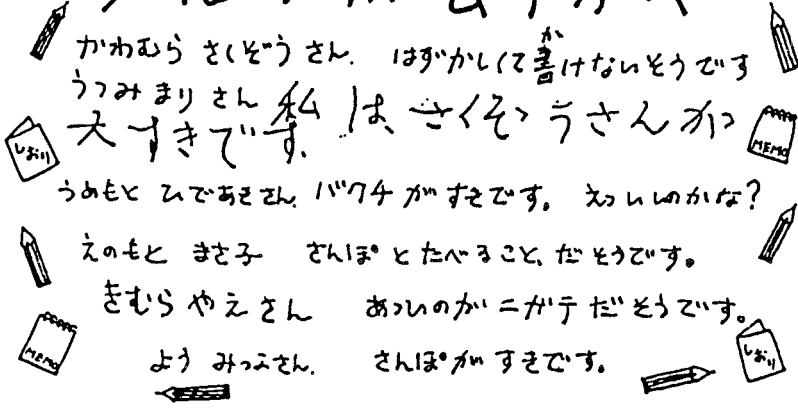 かわむら さくぞうさん. はずかしくて書けないそうです
か
うつみ まりさん 私は、さくぞうさんが
大すきです.
うめもと ひであきさん. バクチがすきです。えっ いいのかな?
えのもと まさ子 さんぽとたべること、だそうです。
きむらやえさん あついのがニガテだそうです。
よう みつ子さん. さんぽがすきです。
しおり
MEMO
MEMO
しおり